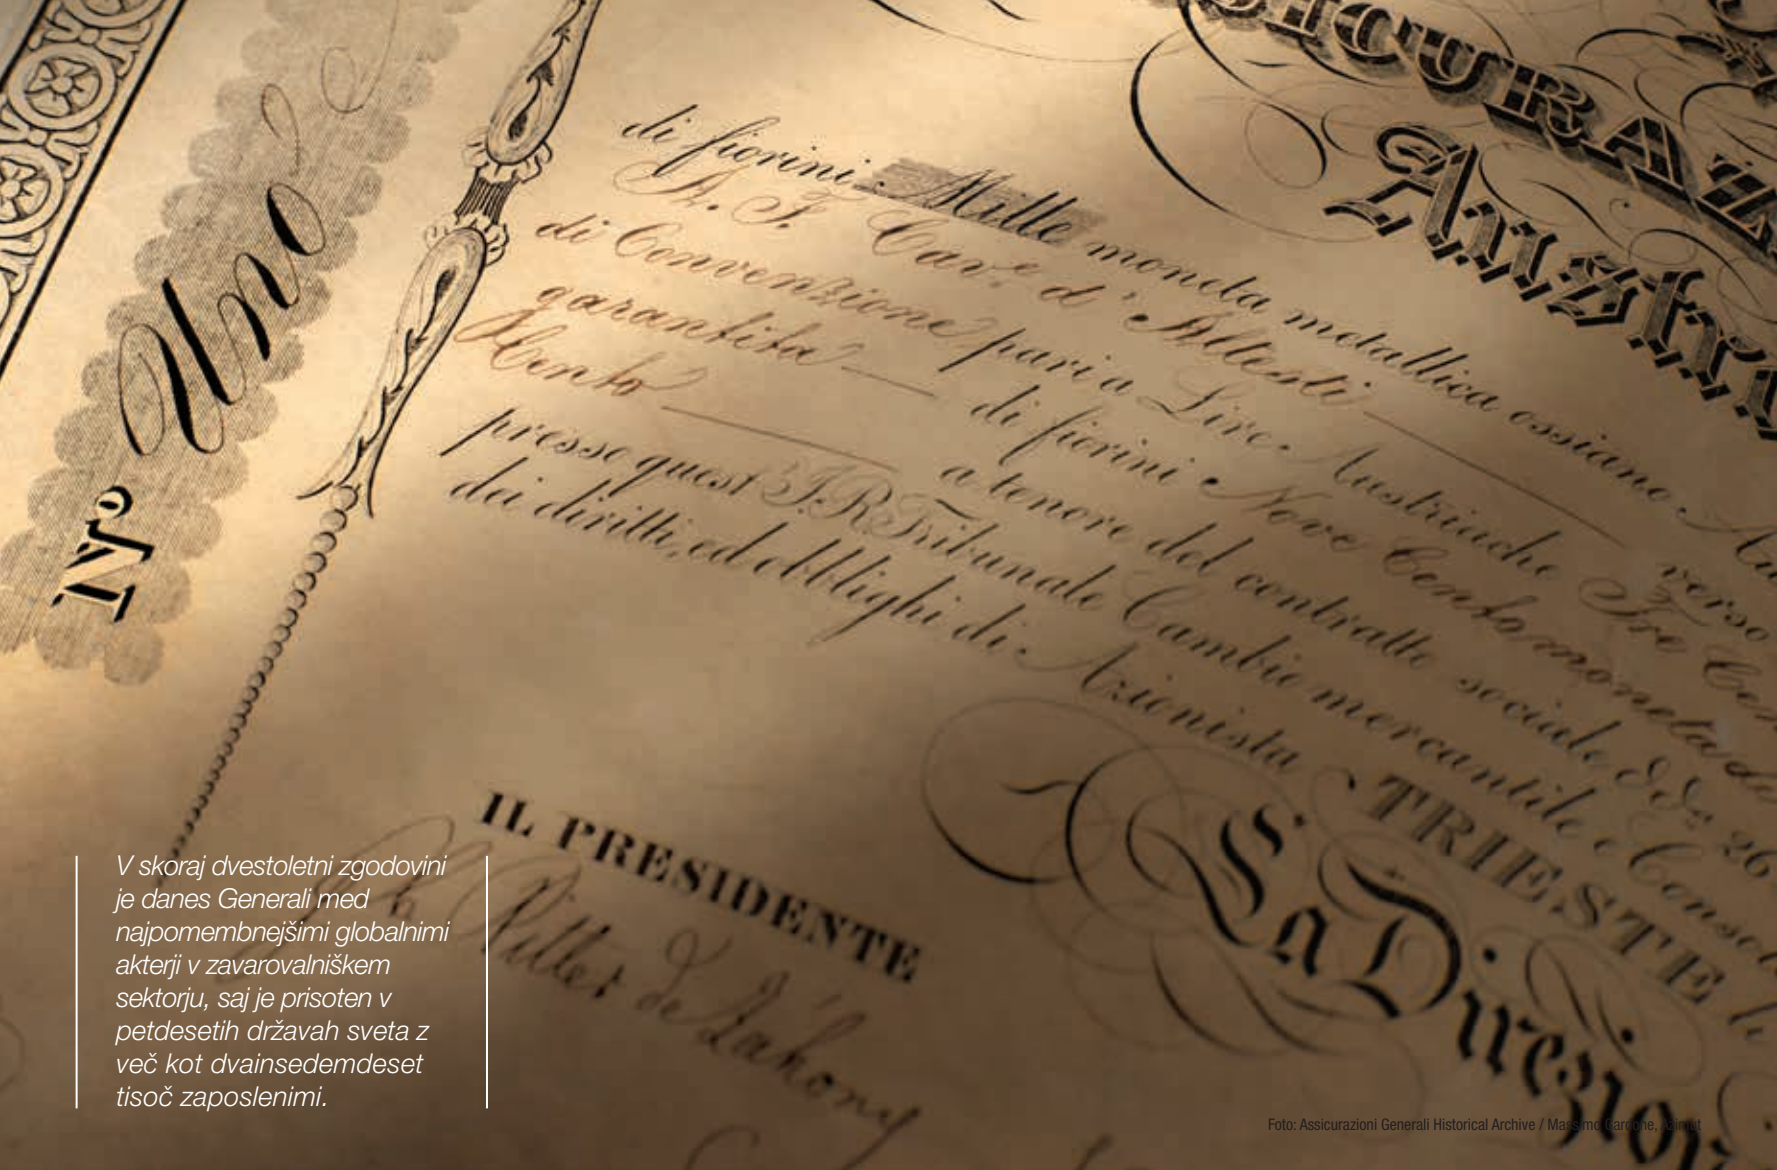 Nº Uno
di fiorini Mille moneta metallica ossiano
A. F. Cav.e d'Allesti verso
di Convenzione pari a Lire Austriache Tre Ce
garantita di fiorini Nove Cento moneta
Cento a tenore del contratto sociale 26
presso quest' I. R. Tribunale Cambio mercantile e Conso
dei diritti, ed obblighi di Azionista
TRIESTE li
IL PRESIDENTE
La Direzion
V skoraj dvestoletni zgodovini
je danes Generali med
najpomembnejšimi globalnimi
akterji v zavarovalniškem
sektorju, saj je prisoten v
petdesetih državah sveta z
več kot dvainsedemdeset
tisoč zaposlenimi.
Foto: Assicurazioni Generali Historical Archive / Massimo